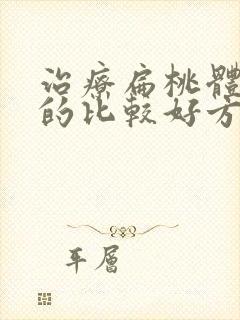 治療扁桃體
的比較好方
平層